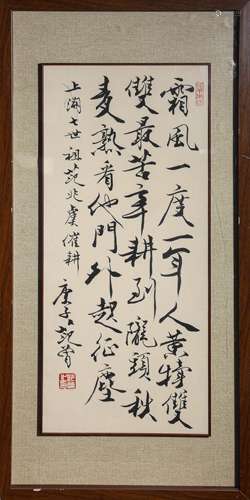 霜風一度一年人黃犢雙
雙最苦辛耕到隴頭秋
麥熟看他門外起征塵
上浦七世祖范兆虞催耕
庚子范曾